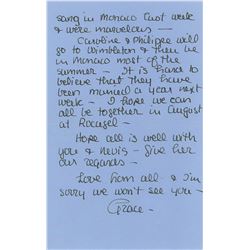 sang in Monaco last week
& were marvelous —
Caroline & Philippe will
go to Wimbleton & then be
in Monaco most of the
summer — It is hard to
believe that they have
been married a year next
week — I hope we can
all be together in August
at Rocagel —
Hope all is well with
you & Nevis — Give her
our regards —
Love from all & I'm
sorry we won't see you —
Grace —